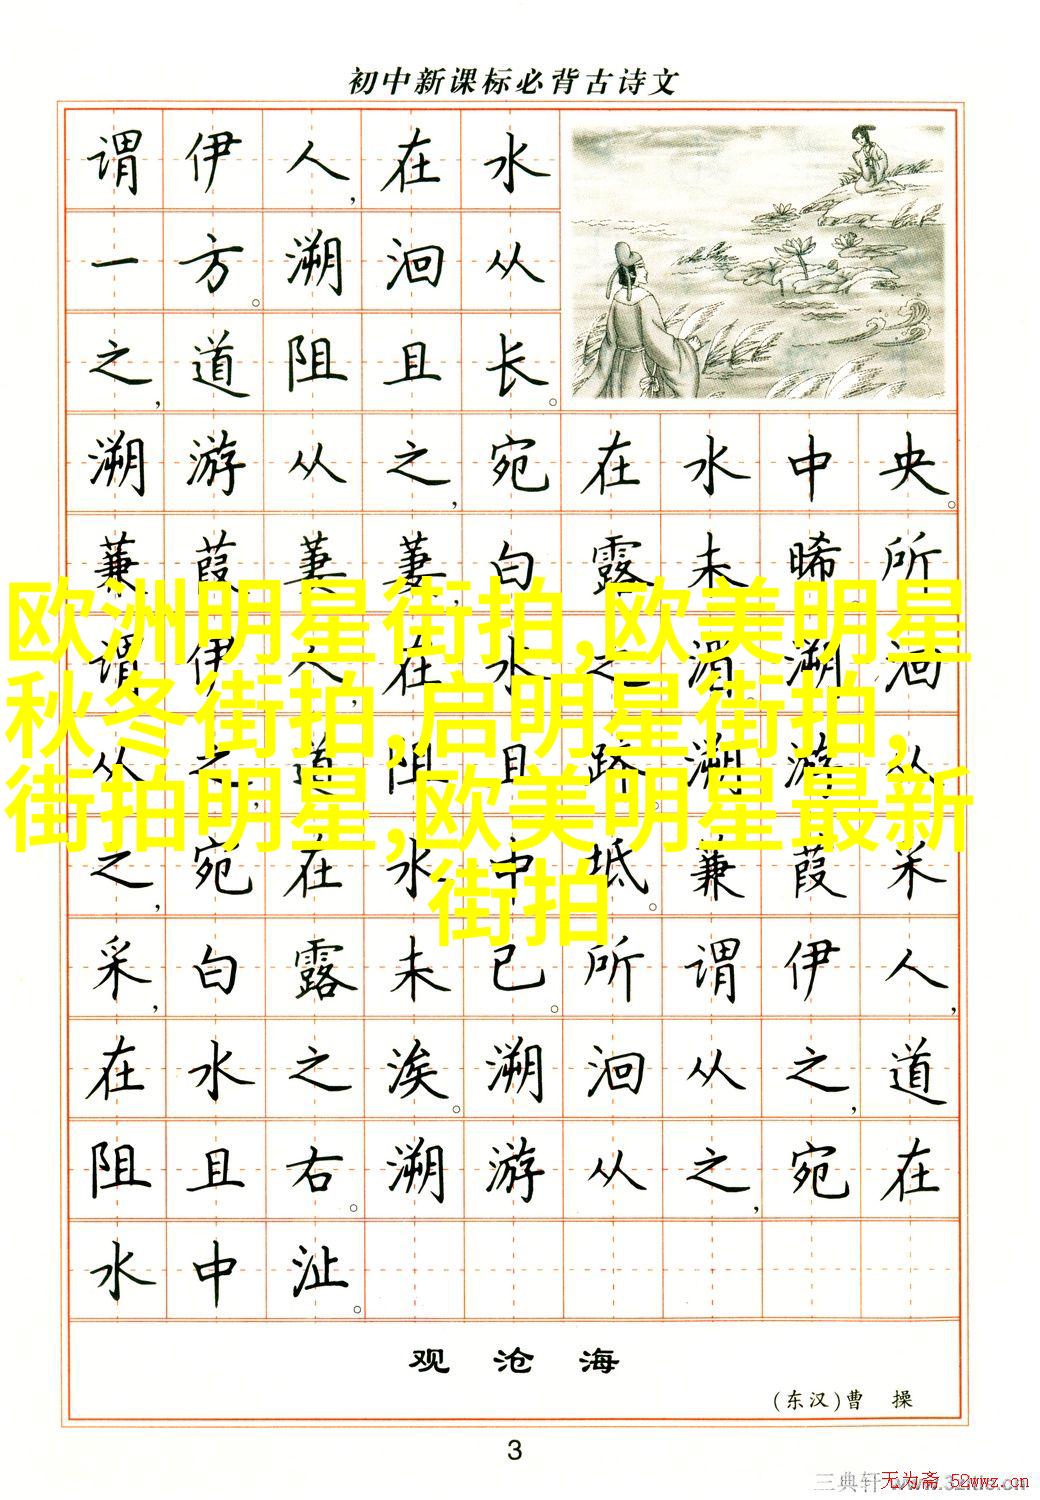 初中新课标必背古诗文
谓伊人，在水
一方。溯洄从
之，道阻且长。
溯游从之，宛在水中央。
蒹葭萋萋，白露未晞所
谓伊人，在水之湄溯洄
从之，道阻且跻。溯游从
之，宛在水中坻。蒹葭采
采，白露未已。所谓伊人，
在水之涘。溯洄从之，道
阻且右。溯游从之，宛在
水中沚。
欧洲明星街拍,欧美明星
秋冬街拍,启明星街拍,
街拍明星,欧美明星最新
街拍
观沧海
(东汉)曹操
3
无为斋 52wwz.cn
三典轩